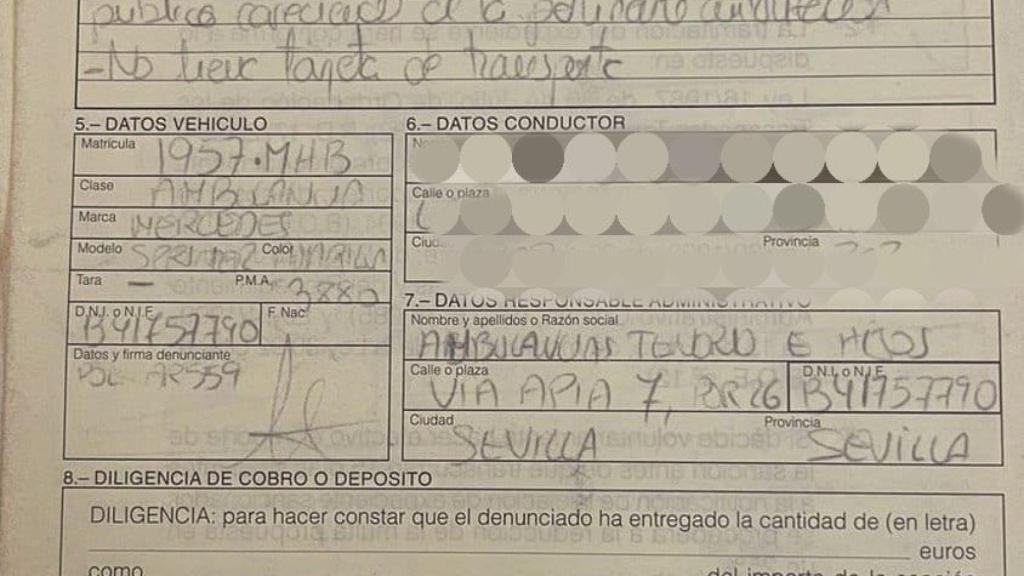 público
-No tiene Tarjeta de Transporte
5.– DATOS VEHICULO
Matrícula 1957·MHB
Clase AMBULANCIA
Marca MERCEDES
Modelo Color AMARILLA
Tara — P.M.A. 3880
D.N.I. o N.I.F. B41757790 F. Nac.
Datos y firma denunciante
POL AR559
6.– DATOS CONDUCTOR
Calle o plaza
Provincia
7.– DATOS RESPONSABLE ADMINISTRATIVO
Nombre y apellidos o Razón social
AMBULANCIAS TENORIO E HIJOS
Calle o plaza VIA APIA 7, POR 26 D.N.I. o N.I.F. B41757790
Ciudad SEVILLA Provincia SEVILLA
8.– DILIGENCIA DE COBRO O DEPOSITO
DILIGENCIA: para hacer constar que el denunciado ha entregado la cantidad de (en letra)
euros
como del importe de la